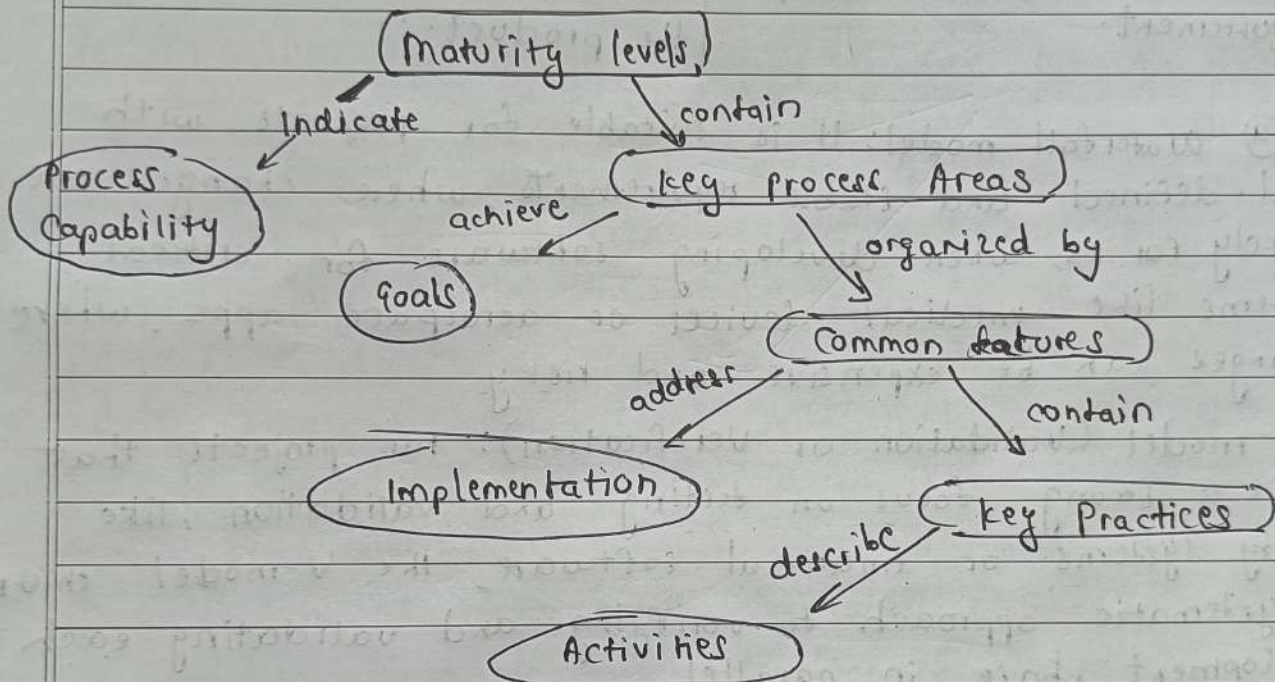 Maturity levels
indicate
contain
Process
Capability
key process Areas
achieve
organized by
Goals
Common featores
address
contain
Implementation
key Practices
describe
Activities